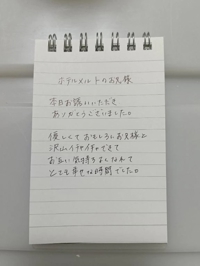 ホテルメルトルお兄様
本日お誘いいただき
ありがとうございました。
優しくておもしろいお兄様と
沢山イチャイチャできて
お互い気持ちよくなれて
とても幸せな時間でした。